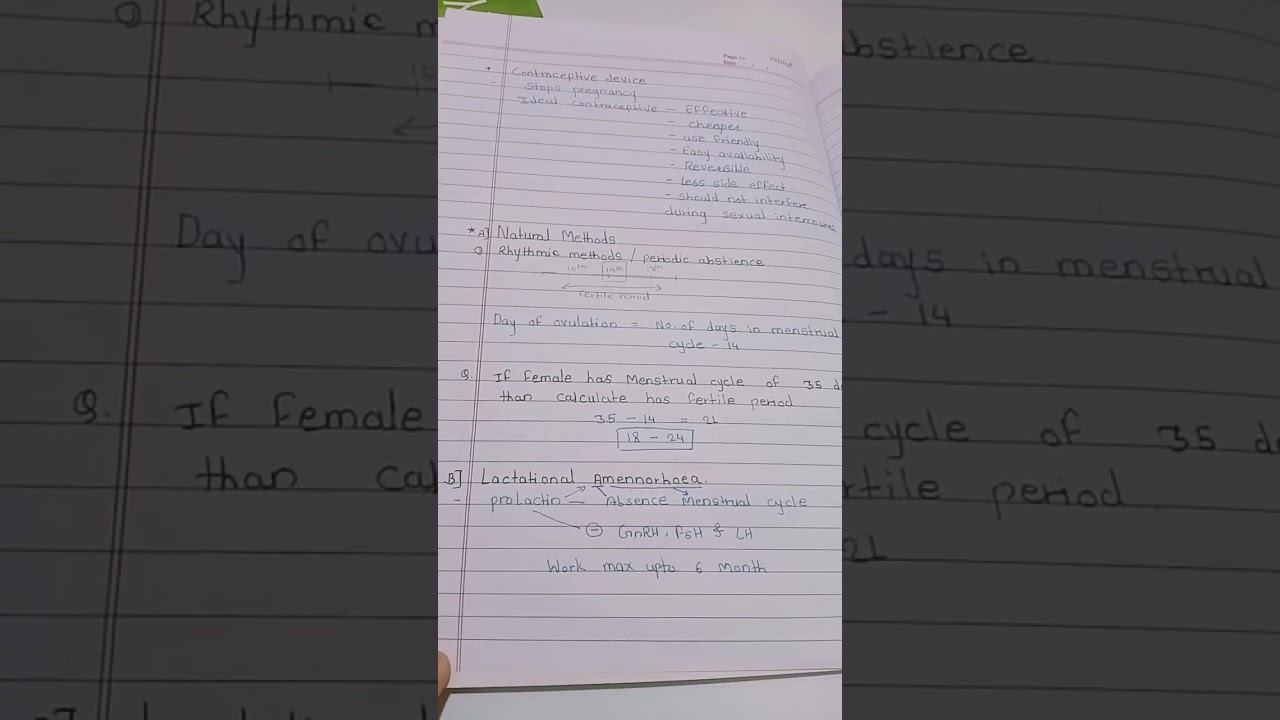 Page No.
Date
• Contraceptive device
- Stops pregnancy
Ideal contraceptive - Effective
- cheaper
- use friendly
- Easy availability
- Reversible
- less side effect
- should not interfere
during sexual intercourse
* A] Natural Methods
Rhythmic methods / periodic abstience.
10th 14th 17th
fertile period
Day of ovulation = No. of days in menstrual
cycle - 14
Q. If Female has Menstrual cycle of 35 d
than calculate has fertile period
35 - 14 = 21
18 - 24
B] Lactational Amennorhoea.
- proLactin - Absence Menstrual cycle
⊖ GnRH, FSH & LH
Work max upto 6 month